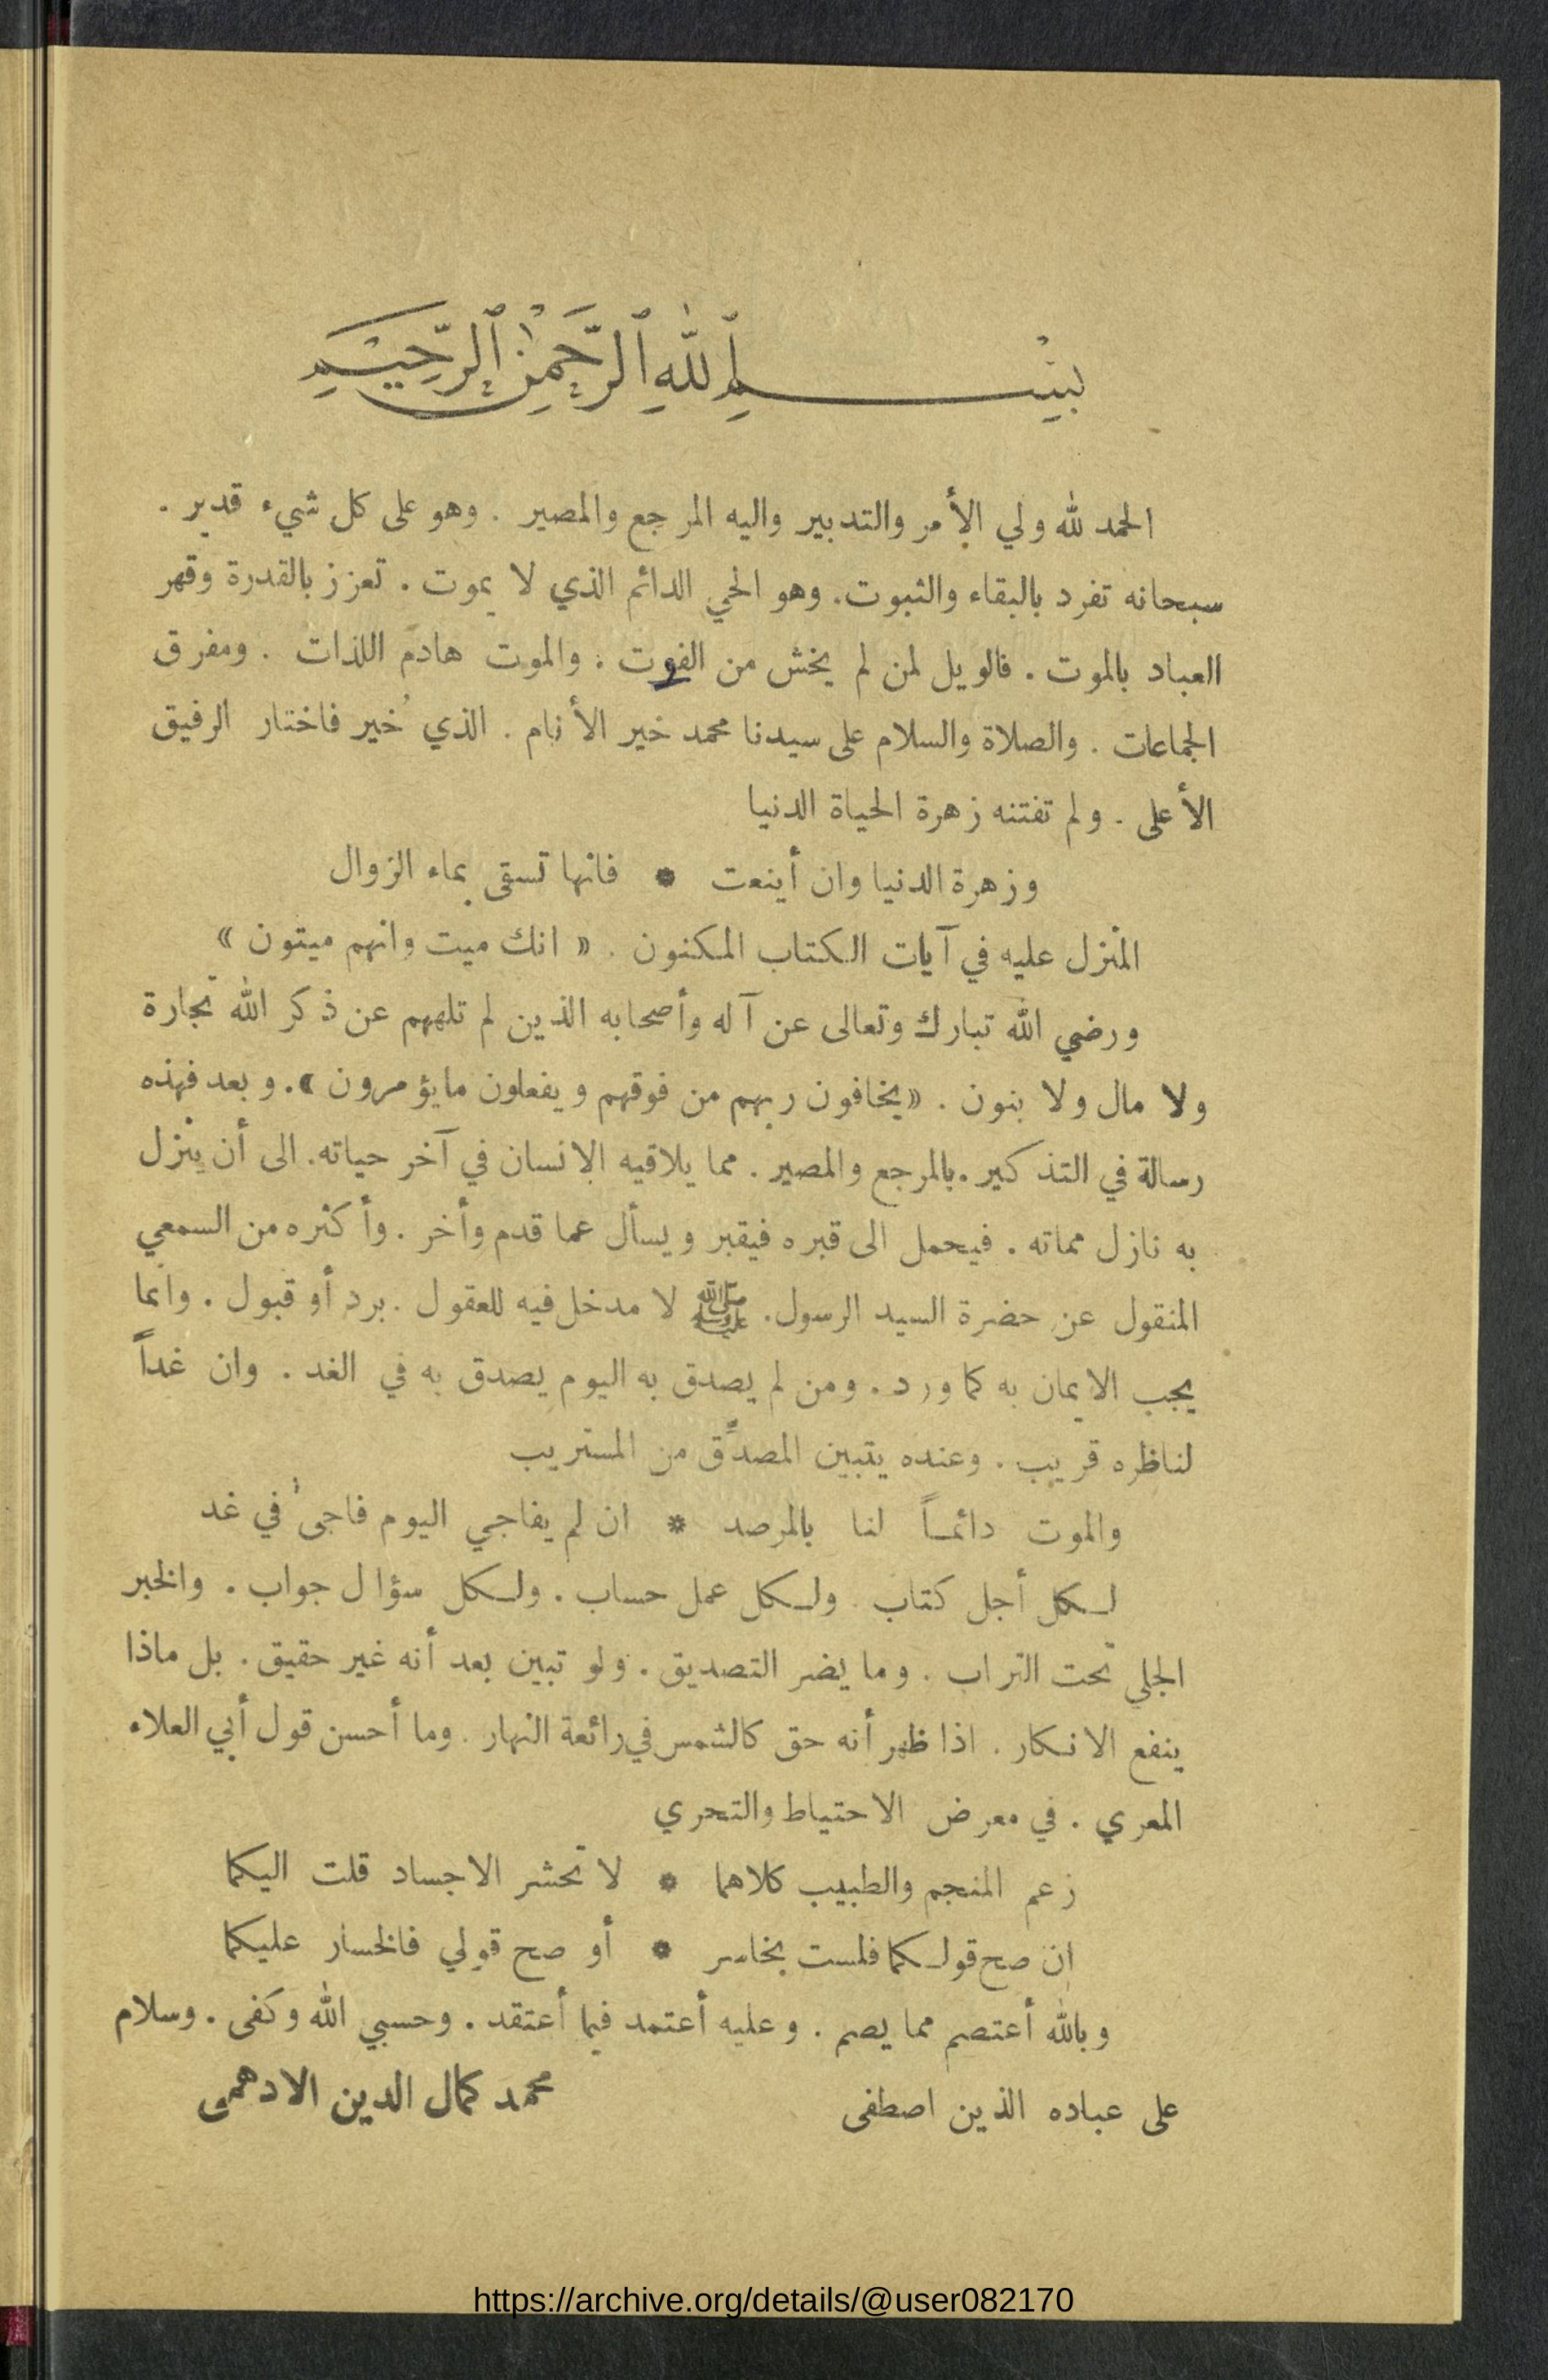 بِسْمِ ٱللّٰهِ ٱلرَّحْمٰنِ ٱلرَّحِيمِ
الحمد لله ولي الأمر والتدبير واليه المرجع والمصير . وهو على كل شيء قدير .
سبحانه تفرد بالبقاء والثبوت. وهو الحي الدائم الذي لا يموت . تعزز بالقدرة وقهر
العباد بالموت . فالويل لمن لم يخش من الفوت . والموت هادم اللذات . ومفرق
الجماعات . والصلاة والسلام على سيدنا محمد خير الأنام . الذي خُير فاختار الرفيق
الأعلى . ولم تفتنه زهرة الحياة الدنيا
وزهرة الدنيا وان أينعت * فانها تسقى بماء الزوال
المنزل عليه في آيات الكتاب المكنون . « انك ميت وانهم ميتون »
ورضي الله تبارك وتعالى عن آله وأصحابه الذين لم تلههم عن ذكر الله تجارة
ولا مال ولا بنون . « يخافون ربهم من فوقهم ويفعلون مايؤمرون ». وبعد فهذه
رسالة في التذكير . بالمرجع والمصير . مما يلاقيه الانسان في آخر حياته. الى أن ينزل
به نازل مماته . فيحمل الى قبره فيقبر ويسأل عما قدم وأخر . وأكثره من السمعي
المنقول عن حضرة السيد الرسول. ﷺ لا مدخل فيه للعقول . برد أو قبول . وانما
يجب الايمان به كما ورد . ومن لم يصدق به اليوم يصدق به في الغد . وان غداً
لناظره قريب . وعنده يتبين المصدِّق من المستريب
والموت دائماً لنا بالمرصد * ان لم يفاجي اليوم فاجىُ في غد
لكل أجل كتاب . ولكل عمل حساب . ولكل سؤال جواب . والخبر
الجلي تحت التراب . وما يضر التصديق . ولو تبين بعد أنه غير حقيق . بل ماذا
ينفع الانكار . اذا ظهر أنه حق كالشمس في رائعة النهار . وما أحسن قول أبي العلاء
المعري . في معرض الاحتياط والتحري
زعم المنجم والطبيب كلاهما * لا تحشر الاجساد قلت اليكما
ان صح قولكما فلست بخاسر * أو صح قولي فالخسار عليكما
وبالله أعتصم مما يصم . وعليه أعتمد فيما أعتقد . وحسبي الله وكفى . وسلام
على عباده الذين اصطفى محمد كمال الدين الادهمى
https://archive.org/details/@user082170